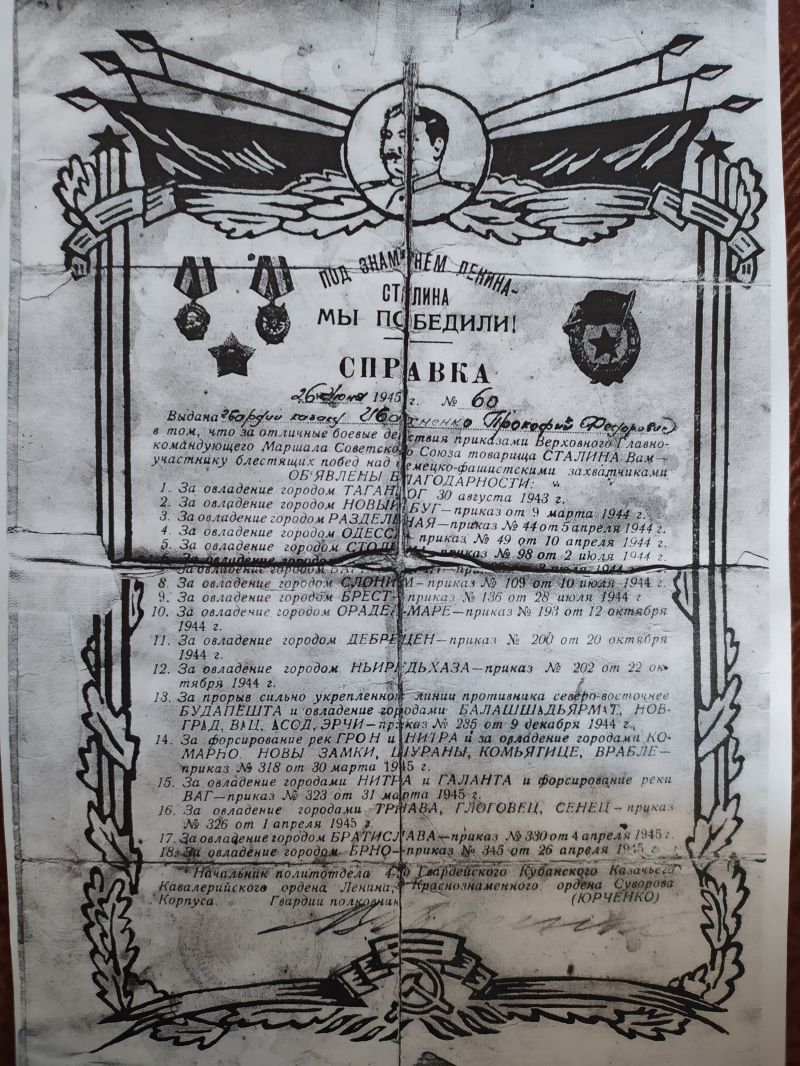 ПОД ЗНАМЕНЕМ ЛЕНИНА-
СТАЛИНА
МЫ ПОБЕДИЛИ!
СПРАВКА
26 июня 1945 г. № 60
Выдана гвардии казаку Прокофий Федорович
в том, что за отличные боевые действия приказами Верховного Главно-
командующего Маршала Советского Союза товарища СТАЛИНА Вам—
участнику блестящих побед над немецко-фашистскими захватчиками
ОБ'ЯВЛЕНЫ БЛАГОДАРНОСТИ:
1. За овладение городом ТАГАНРОГ 30 августа 1943 г.
2. За овладение городом НОВЫЙ БУГ—приказ от 9 марта 1944 г.
3. За овладение городом РАЗДЕЛЬНАЯ—приказ № 44 от 5 апреля 1944 г.
4. За овладение городом ОДЕССА приказ № 49 от 10 апреля 1944 г.
5. За овладение городом приказ № 98 от 2 июля 1944 г.
6. За овладение городом
За овладение городом июля 1944 г.
8. За овладение городом СЛОНИМ—приказ № 109 от 10 июля 1944 г.
9. За овладение городом БРЕСТ—приказ № 136 от 28 июля 1944 г
10. За овладение городом ОРАДЕА-МАРЕ—приказ № 193 от 12 октября
1944 г.
11. За овладение городом ДЕБРЕЦЕН—приказ № 200 от 20 октября
1944 г.
12. За овладение городом НЬИРЕДЬХАЗА—приказ № 202 от 22 ок-
тября 1944 г.
13. За прорыв сильно укрепленной линии противника северо-восточнее
БУДАПЕШТА и овладение городами БАЛАШШАДЬЯРМАТ, НОВ-
ГРАД, ВАЦ, АСОД, ЭРЧИ—приказ № 235 от 9 декабря 1944 г.,
14. За форсирование рек ГРОН и НИТРА и за овладение городами КО-
МАРНО, НОВЫ ЗАМКИ, ШУРАНЫ, КОМЬЯТИЦЕ, ВРАБЛЕ—
приказ № 318 от 30 марта 1945 г.
15. За овладение городами НИТРА и ГАЛАНТА и форсирование реки
ВАГ—приказ № 323 от 31 марта 1945 г.
16. За овладение городами ТРНАВА, ГЛОГОВЕЦ, СЕНЕЦ—приказ
№ 326 от 1 апреля 1945 г.
17. За овладение городом БРАТИСЛАВА—приказ № 330 от 4 апреля 1945 г.
18. За овладение городом БРНО—приказ № 345 от 26 апреля 1945 г.
Начальник политотдела 4-го Гвардейского Кубанского Казачьего
Кавалерийского ордена Ленина, Краснознаменного ордена Суворова
Корпуса. Гвардии полковник (ЮРЧЕНКО)